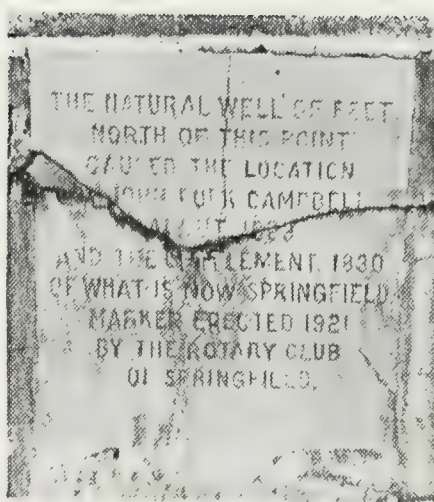 THE NATURAL WELL FEET
NORTH OF THIS POINT
CAUSED THE LOCATION
JOHN POLK CAMPBELL
AND THE SETTLEMENT 1830
OF WHAT IS NOW SPRINGFIELD.
MARKER ERECTED 1921
BY THE ROTARY CLUB
OF SPRINGFIELD.